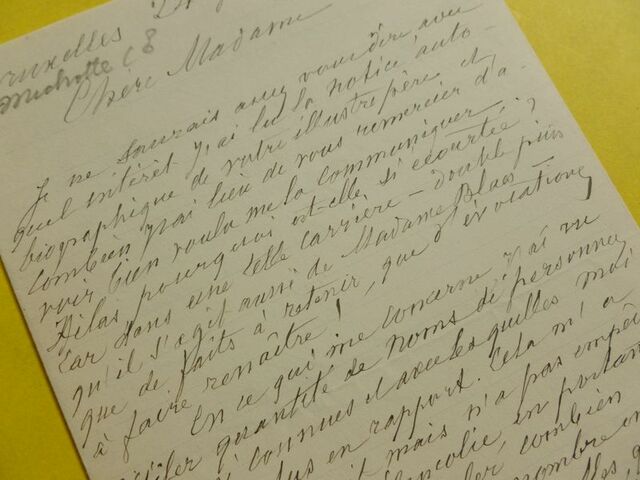 Bruxelles 24
Michotte C 8
Chère Madame
Je ne saurais assez vous dire avec
quel intérêt j'ai lu la notice auto-
biographique de votre illustre père, et
combien j'ai lieu de vous remercier d'a-
voir bien voulu me la communiquer.
Hélas pourquoi est-elle si écourtée?
Car dans une telle carrière – double puis
qu'il s'agit aussi de Madame Blaes –
que de faits à retenir, que d'évocations
à faire renaître!
En ce qui me concerne j'ai vu
quantité de noms de personnes
connues et avec lesquelles moi
en rapport. Cela m'a
mais n'a pas empê
colie, en portan
combien
nombre